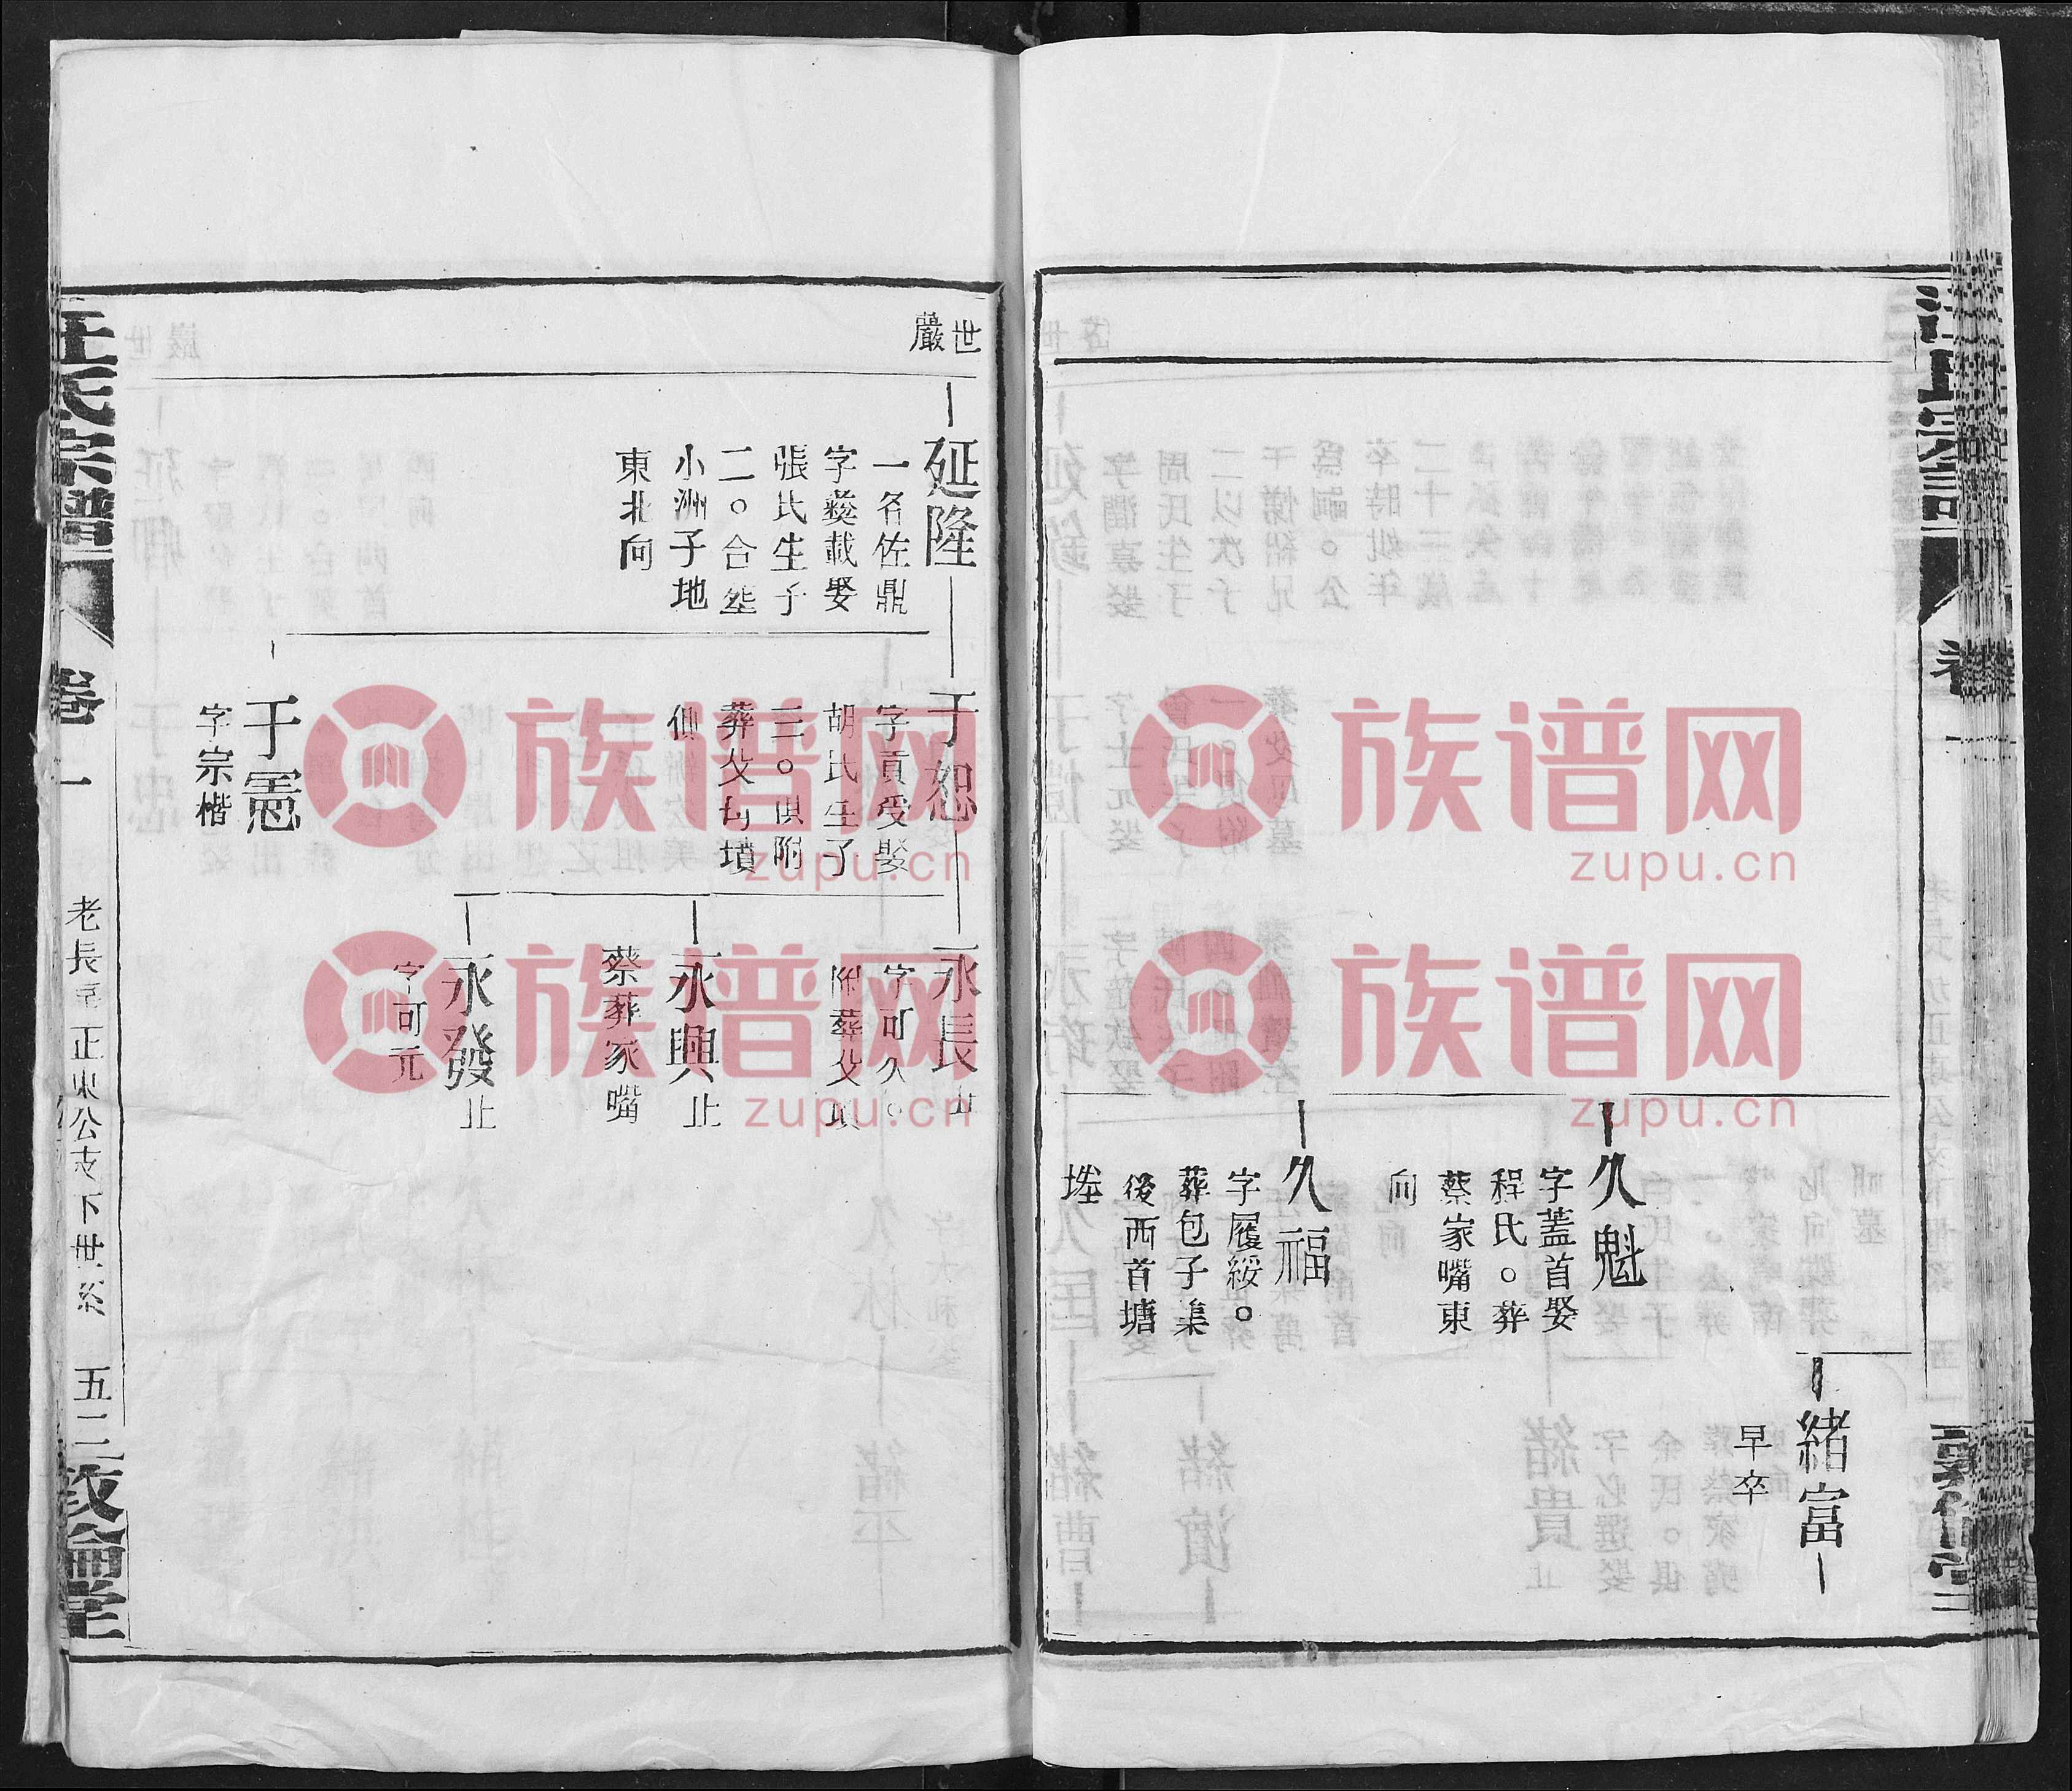 緒富
早卒
久魁
字蓋首娶
程氏。葬
蔡家嘴東
向
久福
字履綏。
葬包子集
後西首塘
世
嚴
延隆
一名佐鼎
字羮載娶
張氏生子
二。合塟
小洲子地
東北向
于恕
字貢受娶
胡氏生子
三。俱附
葬父母墳
側
于憲
字宗楷
永長
字可久。
附葬父墳
永興止
蔡葬家嘴
永發止
字可元
汪氏宗譜
卷一
老長房正東公支下世系
五二
敦倫堂
族谱网
zupu.cn
族谱网
zupu.cn
族谱网
zupu.cn
族谱网
zupu.cn